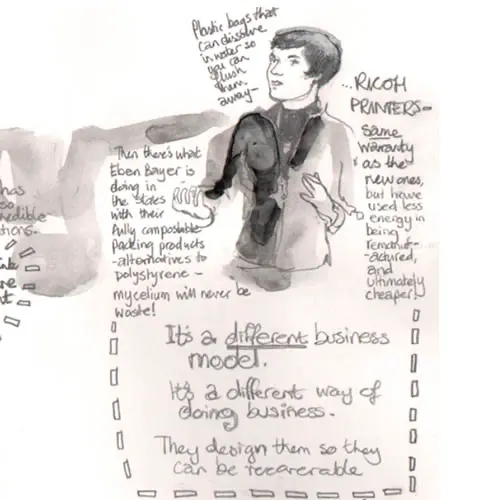 Plastic bags that
can dissolve
in water so
you can
flush
them
away-
...RICOH
PRINTERS-
same
warranty
as the
new ones,
but have
used less
energy in
being
remanuf-
-actured,
and
ultimately
cheaper!
Then there's what
Eben Bayer is
doing in
the states
with their
fully compostable
packing products
-alternatives to
polystyrene -
mycelium will never be
waste!
has
so
redible
tions.
ink
re
t
It's a different business
model.
It's a different way of
doing business.
They design them so they
can be recoverable